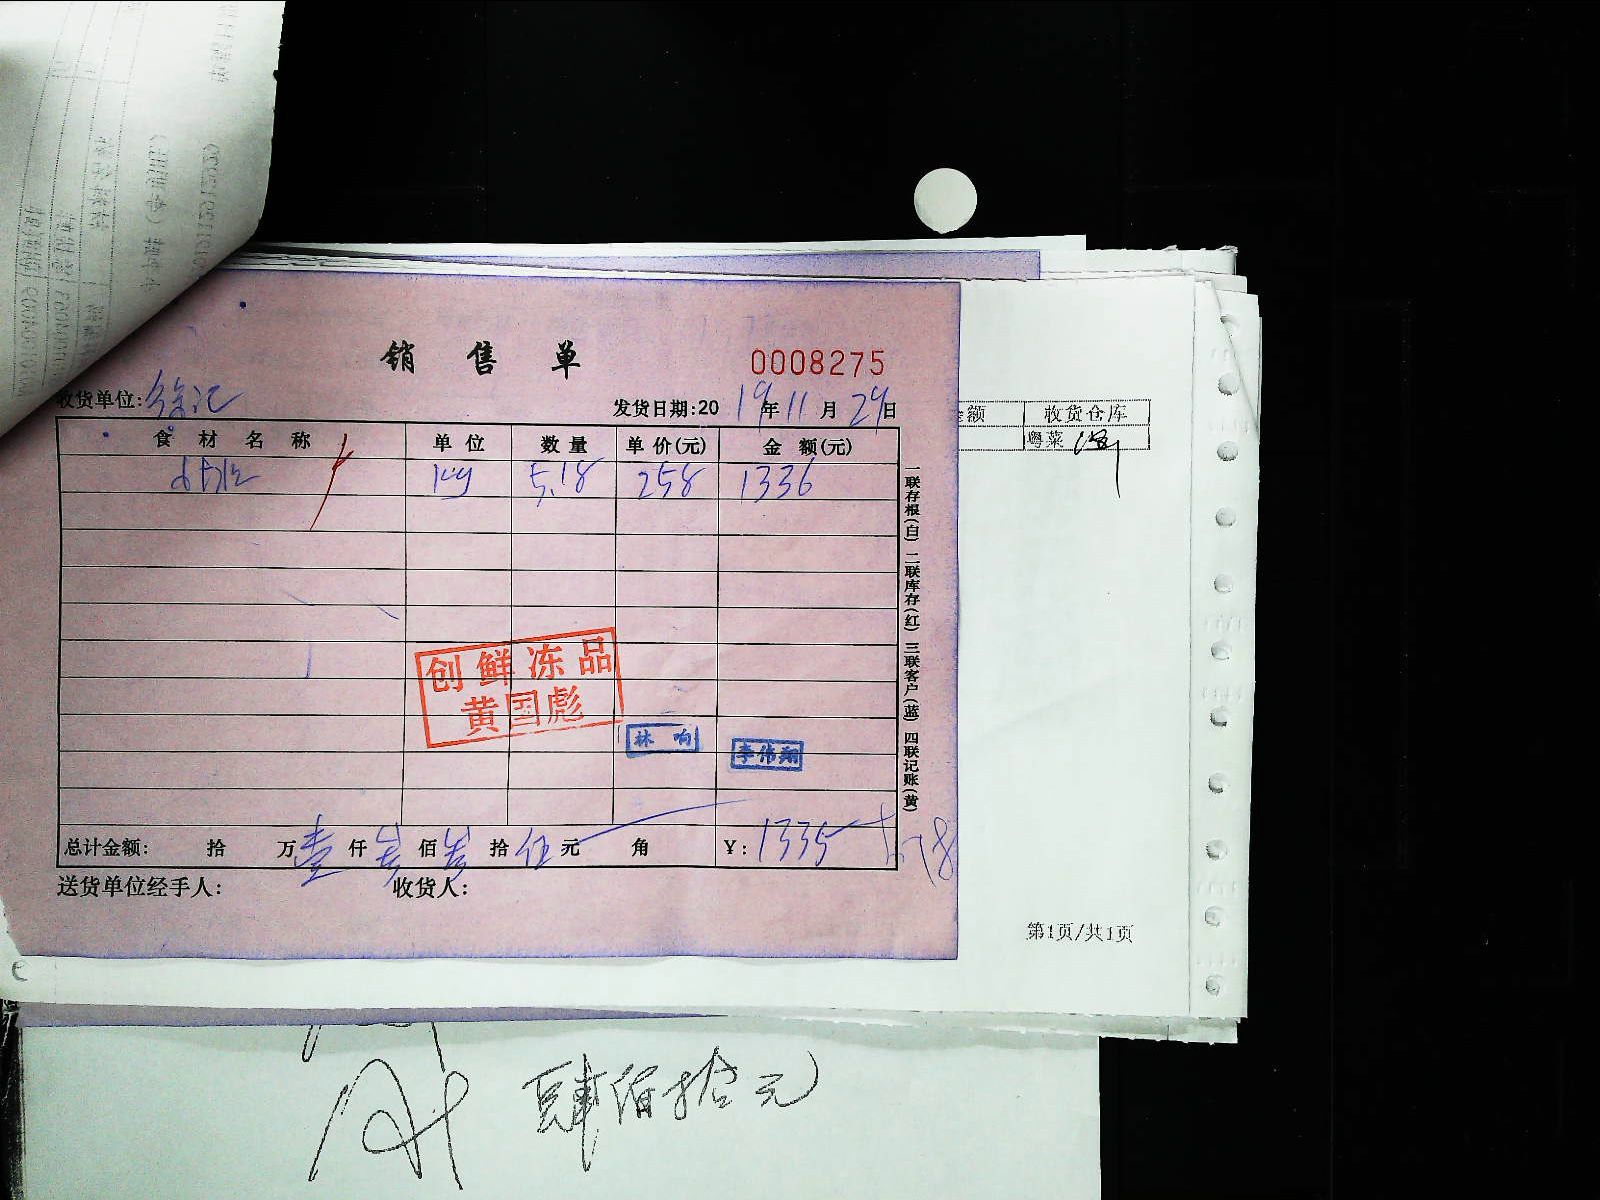 销售单
0008275
收货单位:徐记
发货日期:2019年11月29日
食材名称 单位 数量 单价(元) 金额(元)
kg 5.18 258 1336
创鲜冻品
黄国彪
林响
李伟翔
总计金额: 拾 万壹仟叁佰叁拾伍元 角 ¥:1335
5.18
送货单位经手人: 收货人:
一联存根(白) 二联库存(红) 三联客户(蓝) 四联记账(黄)
金额 收货仓库
粤菜
第1页/共1页
肆佰拾元